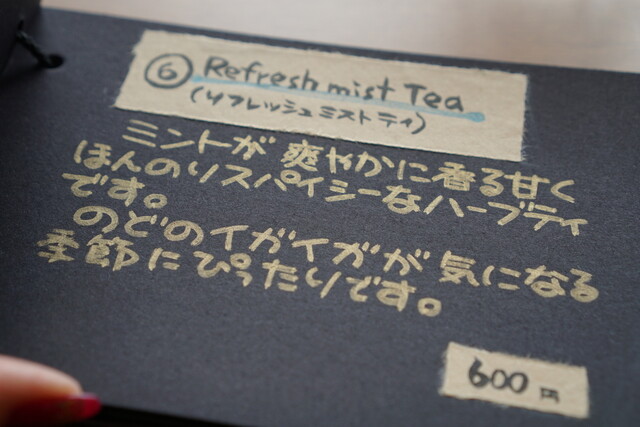 ⑥ Refresh mist Tea
(リフレッシュミストティ)
ミントが爽やかに香る甘く
ほんのりスパイシーなハーブティ
です。
のどのイガイガが気になる
季節にぴったりです。
600円